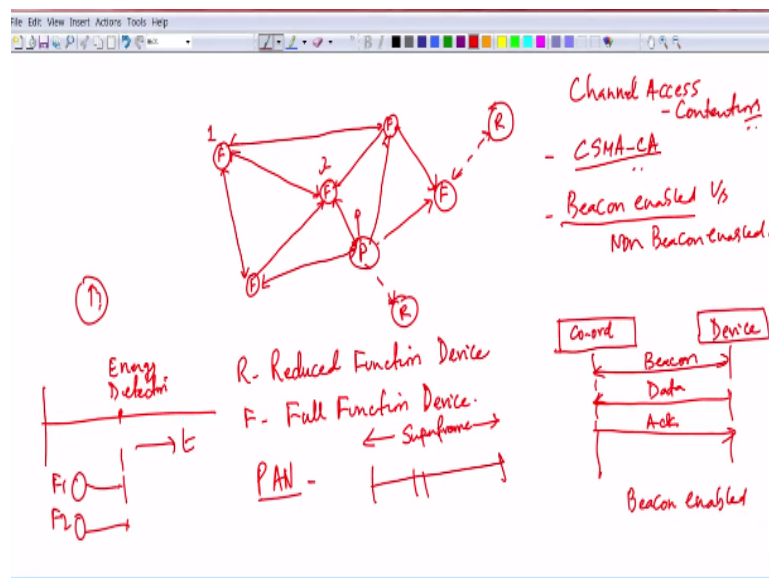 File Edit View Insert Actions Tools Help
Channel Access
- Contentions
- CSMA-CA
- Beacon enabled V/s
Non Beacon enabled.
1
F
F
R
2
F
F
P
F
R
Co-ord
Device
Beacon
Data
Ack
Beacon enabled
Energy
Detection
t
F1
F2
R- Reduced Function Device
F- Full Function Device.
Superframe
PAN -